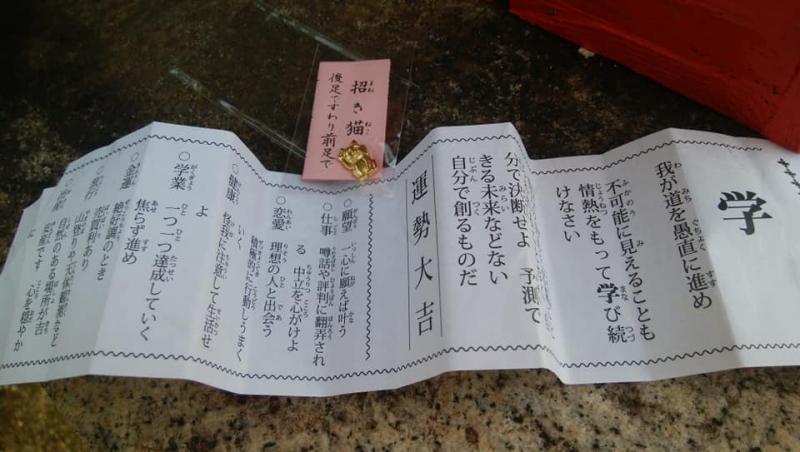 招き猫
後足ですわり前足で
学
我が道を愚直に進め
不可能に見えることも
情熱をもって学び続
けなさい
分で決断せよ 予測で
きる未来などない
自分で創るものだ
運勢大吉
○願望 一心に願えば叶う
○仕事 噂話や評判に翻弄され
る 中立を心がけよ
○恋愛 理想の人と出会う
積極的に行動しうまく
いく
健康 怪我に注意して生活せ
よ
○学業 一つ一つ達成していく
焦らず進め
絶好調のとき
売買利あり
山登りや天体観測など
自然のある場所が吉
です 心を穏やか